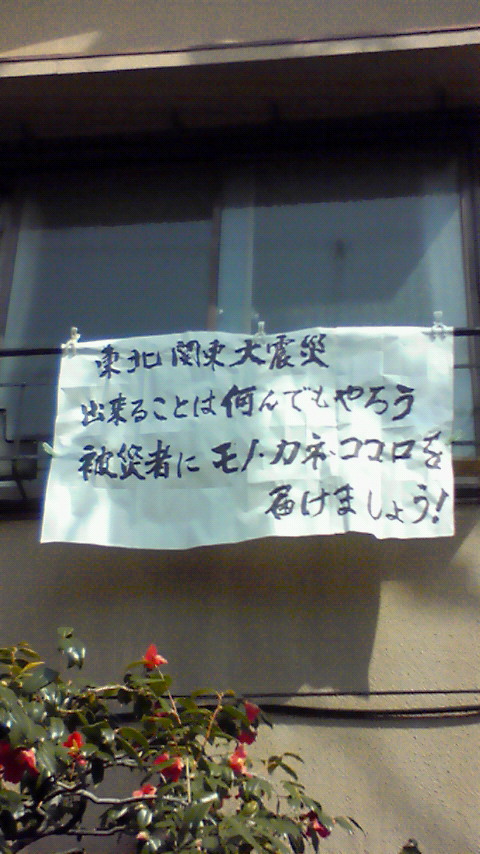 東北関東大震災
出来ることは何んでもやろう
被災者にモノ・カネ・ココロを
届けましょう!